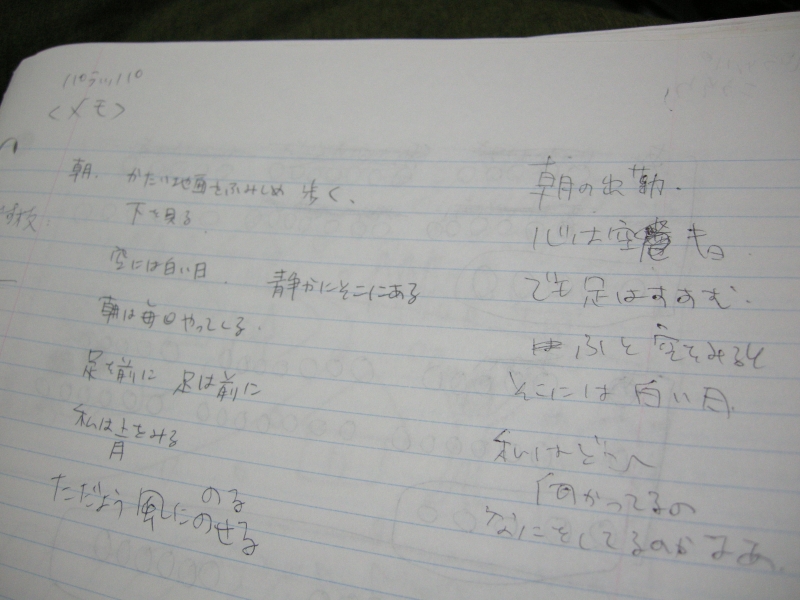 パラッパ
<メモ>
朝. かたい地面をふみしめ 歩く、
下を見る
空には白い月. 静かにそこにある
朝は毎日やってくる.
足を前に 足は前に
私は上をみる
月
ただよう風にのる
のせる
朝の出勤.
心は空
でも足はすすむ.
ふと空をみると
そこには白い月
私はどこへ
向かってるの
なにをしてるのかなあ